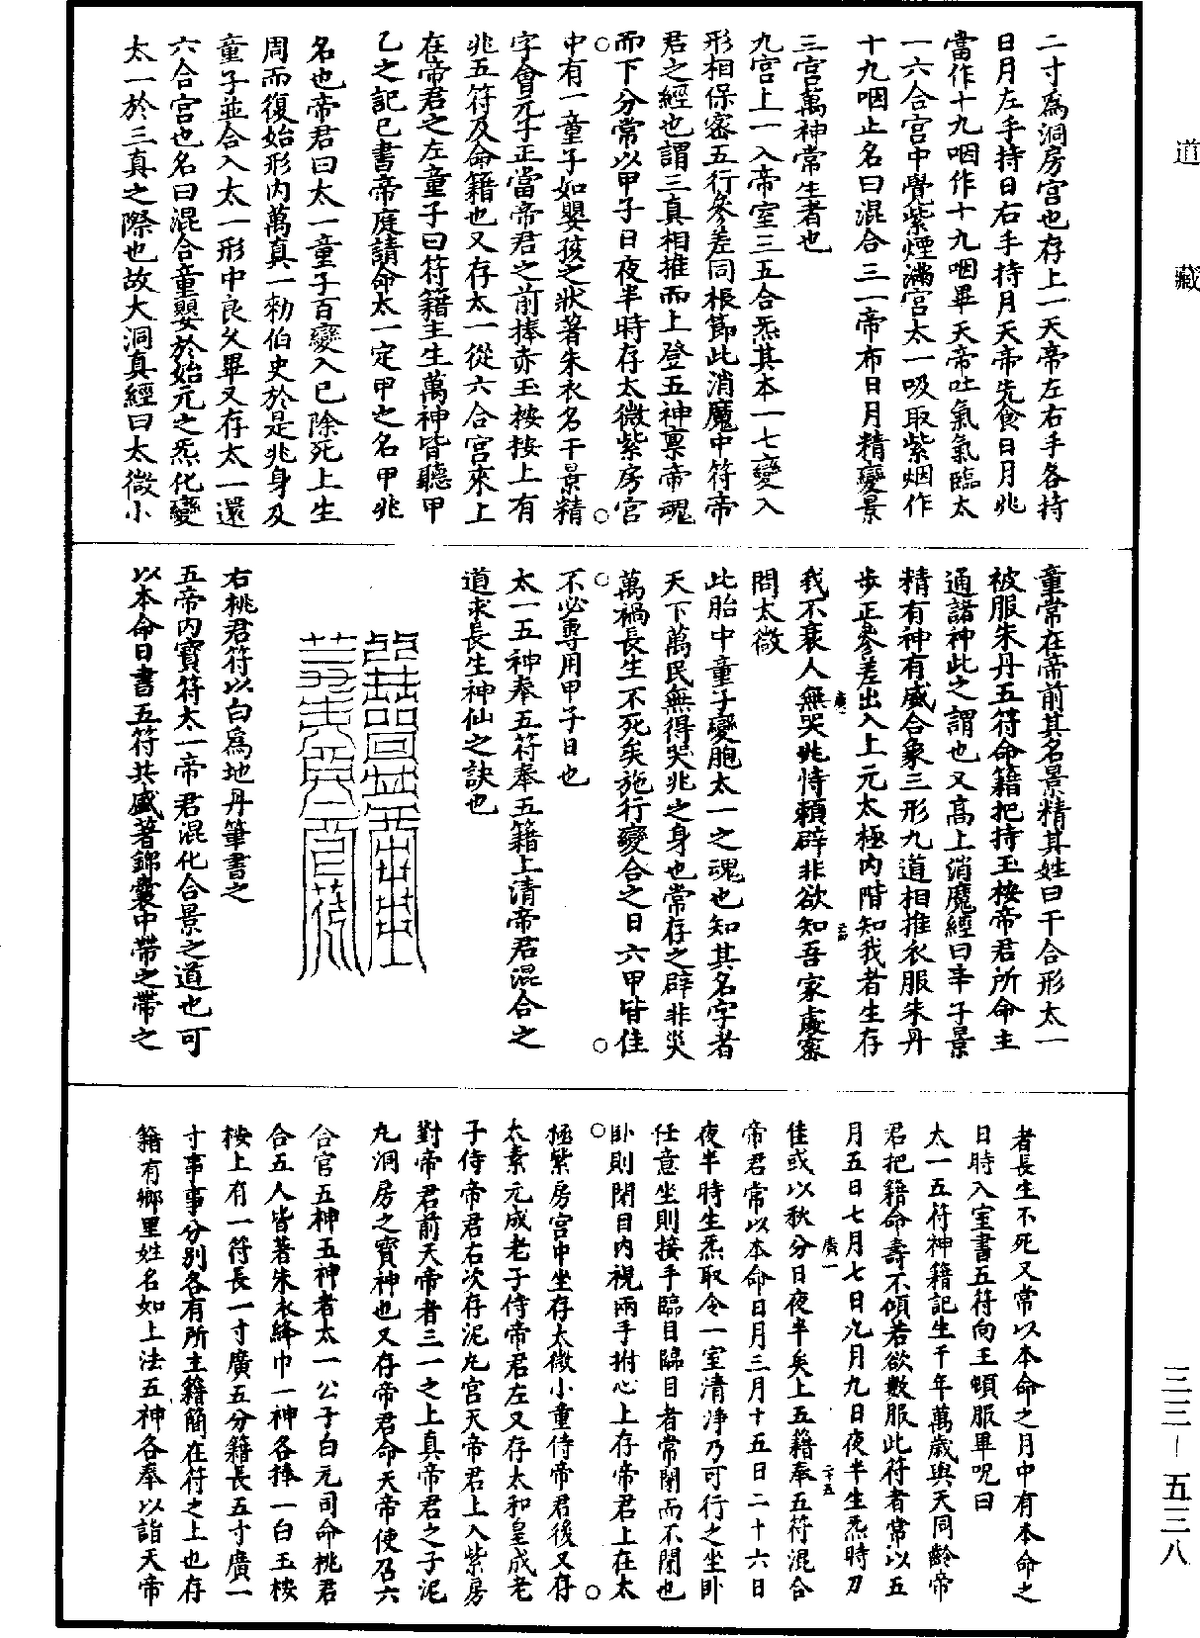 道藏
二寸爲洞房宮也存上一天帝左右手各持
日月左手持日右手持月天帝先食日月兆
當作十九咽作十九咽畢天帝吐氣氣臨太
一六合宮中覺紫煙滿宮太一吸取紫烟作
十九咽止名曰混合三一帝布日月精變景
三宮萬神常生者也
九宮上一入帝室三五合炁其本一七變入
形相保密五行參差同根節此消魔中符帝
君之經也謂三真相推而上登五神稟帝魂
而下分常以甲子日夜半時存太微紫房宮
中有一童子如嬰孩之狀著朱衣名干景精
字會元子正當帝君之前捧赤玉桉按上有
兆五符及命籍也又存太一從六合宮來上
在帝君之左童子曰符籍主生萬神皆聽甲
乙之記已書帝庭請命太一定甲之名甲兆
名也帝君曰太一童子百變入已除死上生
周而復始形內萬真一勑伯史於是兆身及
童子並合入太一形中良久畢又存太一還
六合宮也名曰混合童嬰於始元之炁化變
太一於三真之際也故大洞真經曰太微小
童常在帝前其名景精其姓曰干合形太一
被服朱丹五符命籍把持玉桉帝君所命主
通諸神此之謂也又高上消魔經曰幸子景
精有神有威合象三形九道相推衣服朱丹
步正參差出入上元太極內階知我者生存
我不衰人無哭兆恃賴辟非欲知吾家處密
問太微
此胎中童子變胞太一之魂也知其名字者
天下萬民無得哭兆之身也常存之辟非災
萬禍長生不死矣施行變合之日六甲皆佳
不必專用甲子日也
太一五神奉五符奉五籍上清帝君混合之
道求長生神仙之訣也
右桃君符以白爲地丹筆書之
五帝內寶符太一帝君混化合景之道也可
以本命日書五符共盛著錦囊中帶之帶之
者長生不死又常以本命之月中有本命之
日時入室書五符向王頓服畢呪曰
太一五符神籍記生千年萬歲與天同齡帝
君把籍命壽不傾若欲數服此符者常以五
月五日七月七日九月九日夜半生炁時刀
佳或以秋分日夜半矣上五籍奉五符混合
帝君常以本命日月三月十五日二十六日
夜半時生炁取令一室清淨乃可行之坐卧
任意坐則接手臨目臨目者常閉而不閉也
卧則閉目內視兩手拊心上存帝君上在太
極紫房宮中坐存太微小童侍帝君後又存
太素元成老子侍帝君左又存太和皇成老
子侍帝君右次存泥丸宮天帝君上入紫房
對帝君前天帝者三一之上真帝君之子泥
丸洞房之寶神也又存帝君命天帝使召六
合官五神五神者太一公子白元司命桃君
合五人皆著朱衣絳巾一神各捧一白玉桉
桉上有一符長一寸廣五分籍長五寸廣一
寸事事分别各有所主籍簡在符之上也存
籍有鄉里姓名如上法五神各奉以詣天帝
三三－五三八